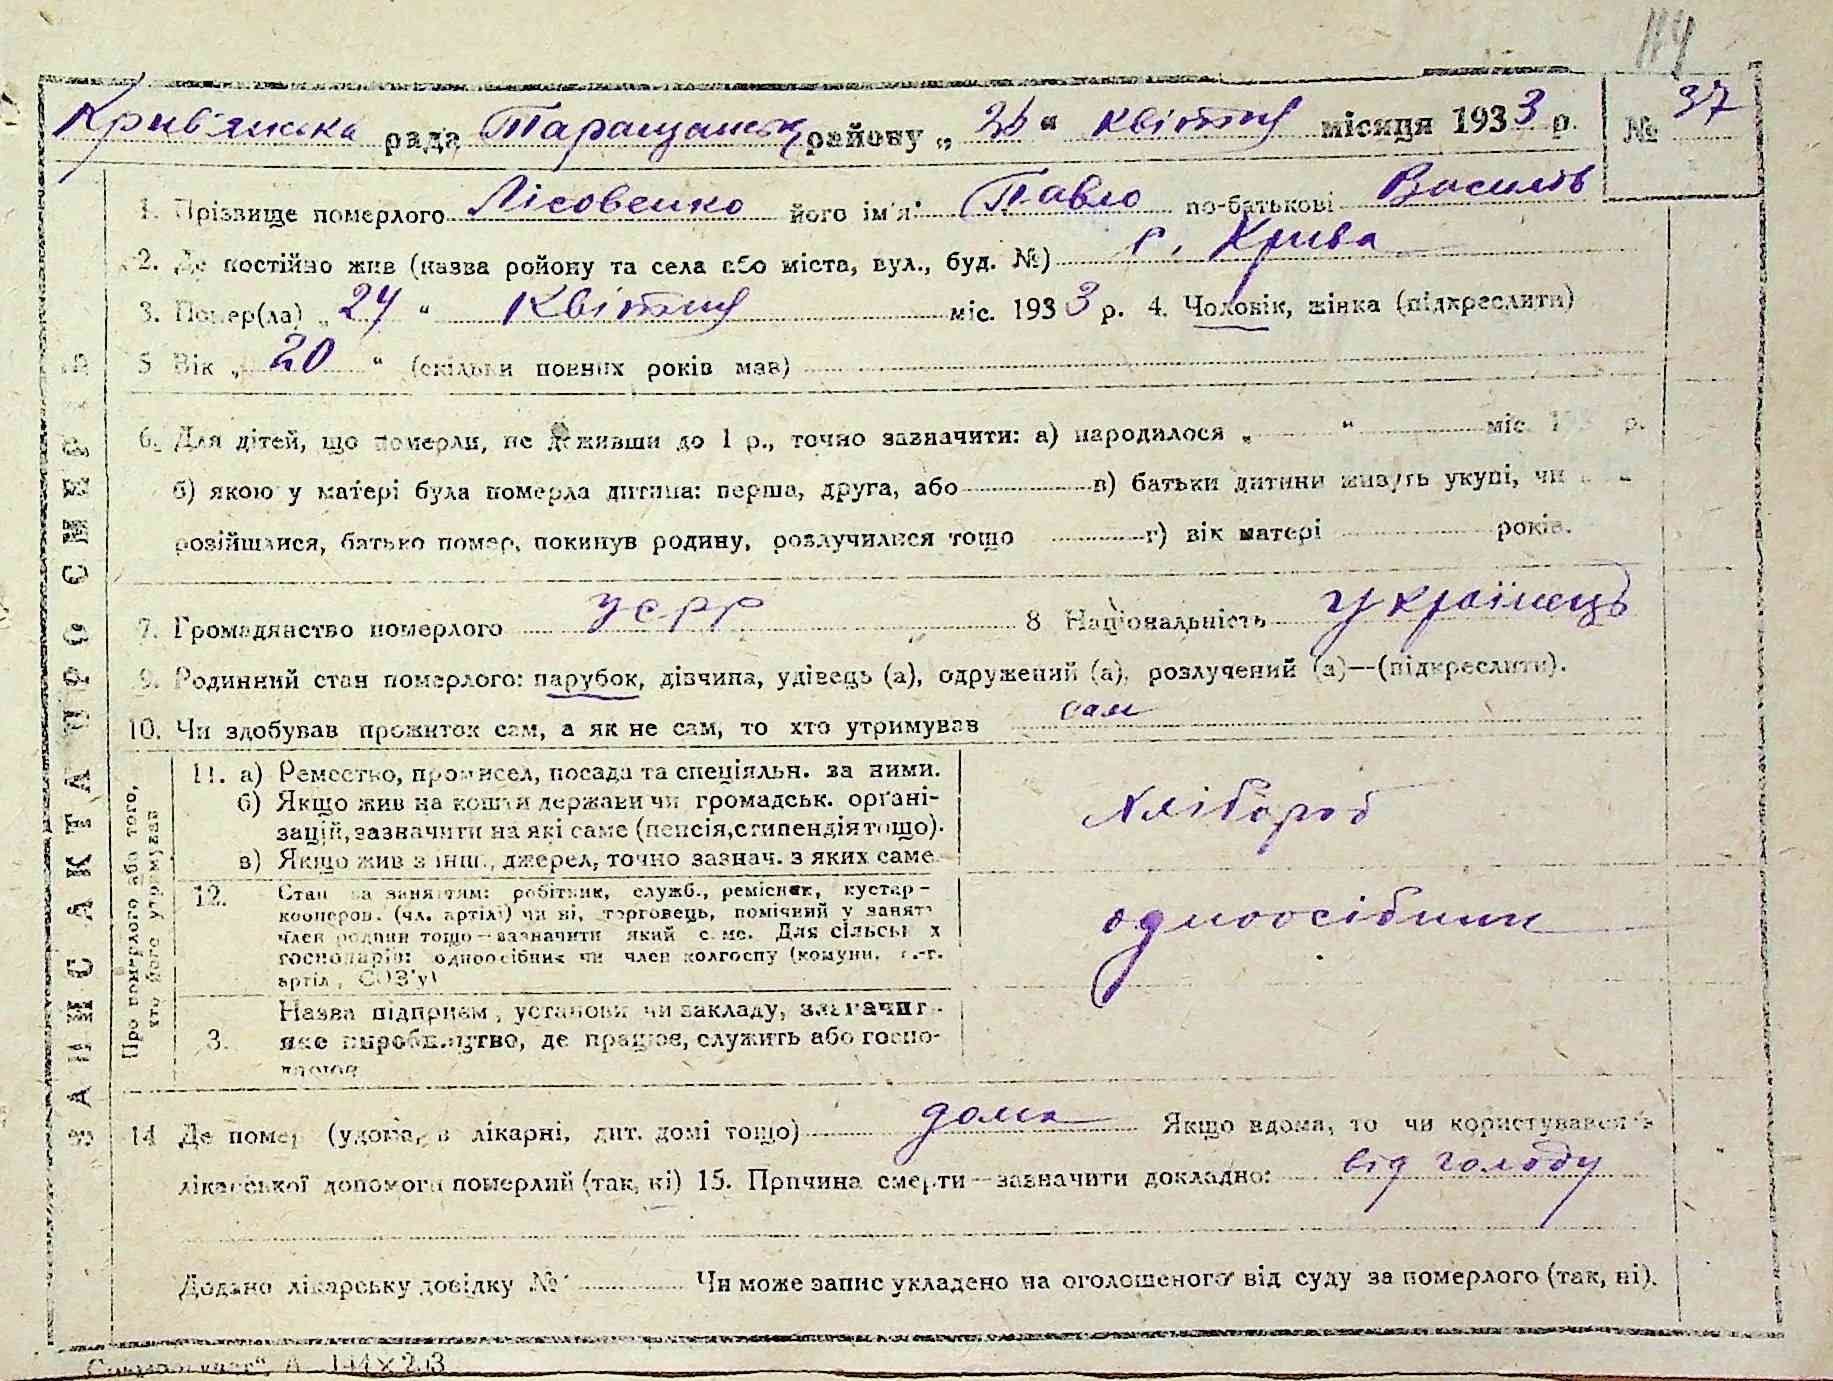 114
Крив'янська рада Таращанськ району „ “ квітня місяця 1933 р. № 37
1. Прізвище померлого Лісовенко його ім'я Павло по-батькові Василів
2. Де постійно жив (назва ройону та села або міста, вул., буд. №) с. Крива
3. Помер(ла) „ 24 “ квітня міс. 1933 р. 4. Чоловік, жінка (підкреслити)
5 Вік „ 20 “ (скільки повних років мав)
6. Для дітей, що померли, не доживши до 1 р., точно зазначити: а) народилося „ “ міс. 193 р.
б) якою у матері була померла дитина: перша, друга, або в) батьки дитини живуть укупі, чи
розійшлися, батько помер, покинув родину, розлучилися тощо г) вік матері років.
7. Громадянство померлого УСРР 8 Національність українець
9. Родинний стан померлого: парубок, дівчина, удівець (а), одружений (а), розлучений (а)—(підкреслити).
10. Чи здобував прожиток сам, а як не сам, то хто утримував сам
ЗАПИС АКТА ПРО СМЕРТЬ
Про померлого або того,
хто його утримував
11. а) Ремество, промисел, посада та спеціяльн. за ними.
б) Якщо жив на кошти держави чи громадськ. органі-
зацій, зазначити на які саме (пенсія, стипендія тощо).
в) Якщо жив з інш., джерел, точно зазнач. з яких саме.
хлібороб
12. Стан за заняттям: робітник, служб., ремісник, кустар-
кооперов. (чл. артілі) чи ні, торговець, помічний у занятт
член родини тощо—зазначити який саме. Для сільськ х
господарів: одноосібник чи член колгоспу (комуни, с.-г.
артіл, СОЗ'у)
одноосібник
3. Назва підприєм, установи чи закладу, зазначит
яке виробництво, де працює, служить або госпо-
дарює
14 Де помер (удома, в лікарні, дит. домі тощо) дома Якщо вдома, то чи користувався
лікарської допомоги померлий (так, ні) 15. Причина смерти—зазначити докладно: від голоду
Додано лікарську довідку № Чи може запис укладено на оголошеного від суду за померлого (так, ні).